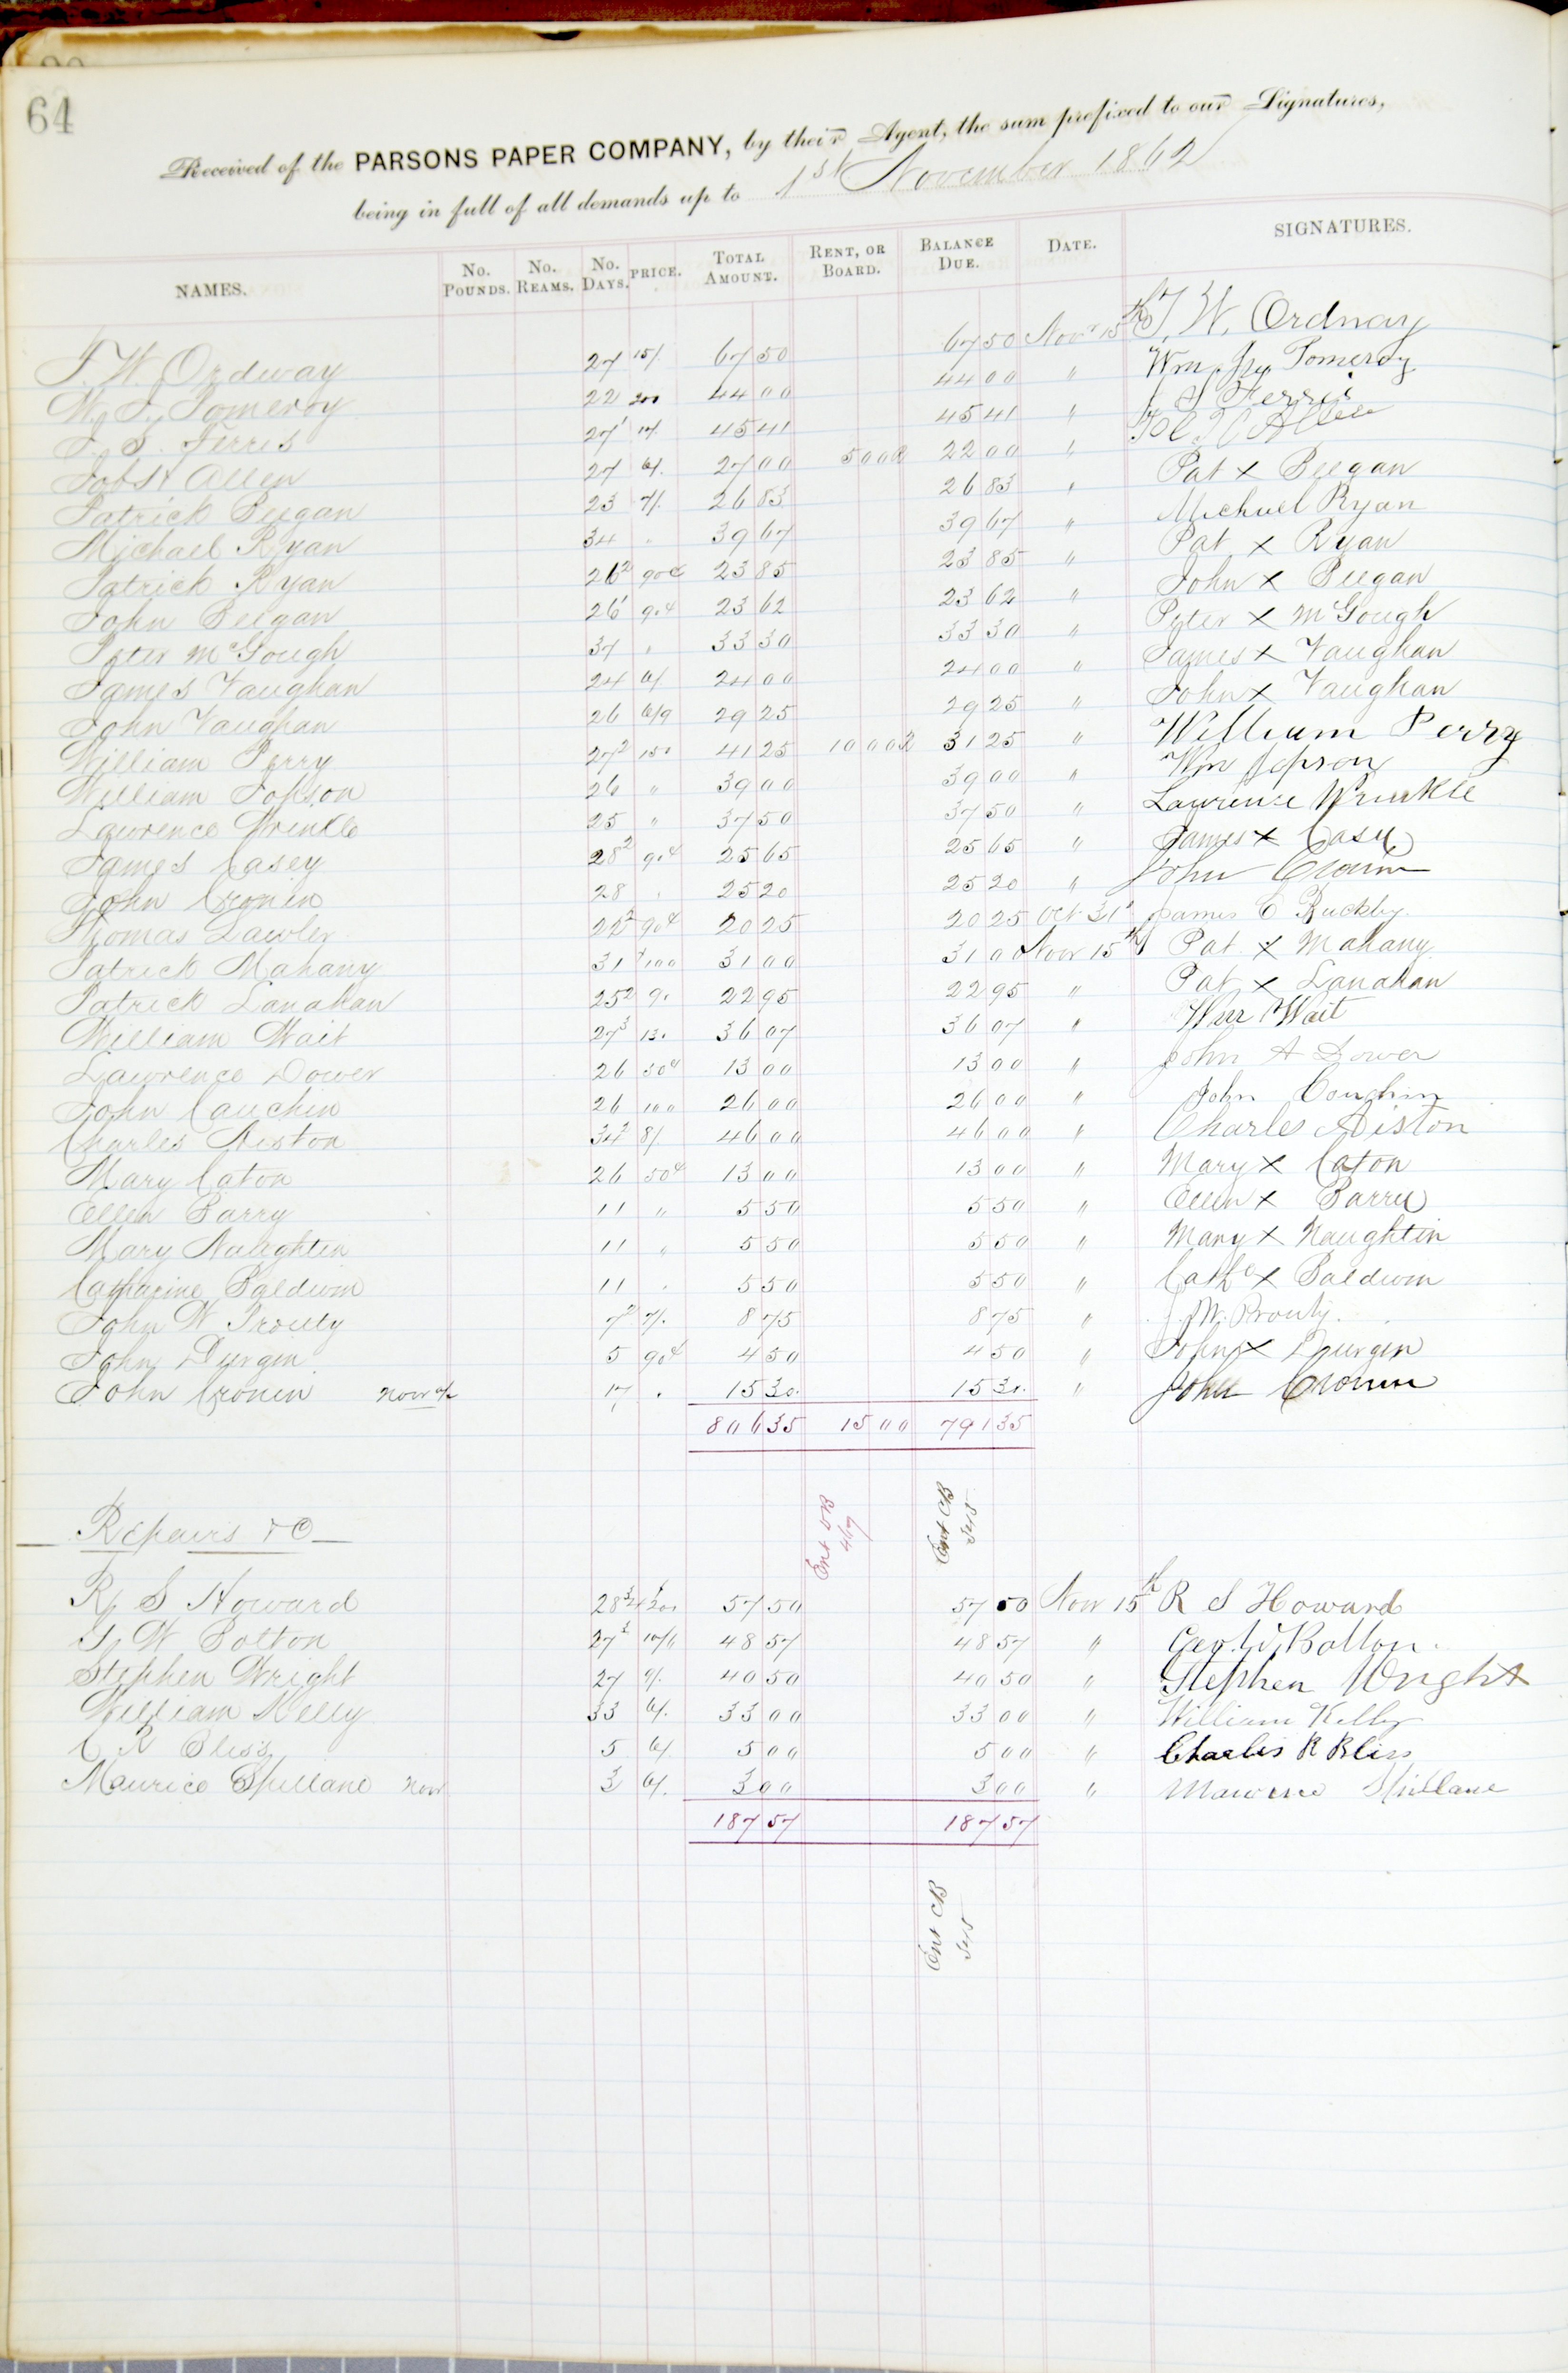 64
Received of the PARSONS PAPER COMPANY, by their Agent, the sum prefixed to our Signatures,
being in full of all demands up to 1st November 1862
NAMES. No. POUNDS. No. REAMS. No. DAYS. PRICE. TOTAL AMOUNT. RENT, OR BOARD. BALANCE DUE. DATE. SIGNATURES.
T. W. Ordway 27 15/. 67 50 67 50 Novr 15th T. W. Ordway
W. J. Pomeroy 22 200 44 00 44 00 " Wm Pomeroy
J. S. Ferris 27 45 41 45 41 " J S Ferris
Allen 27 6/. 27 00 5 00 R 22 00 "
Patrick Beegan 23 7/. 26 83 26 83 " Pat x Beegan
Michael Ryan 34 " 39 67 39 67 " Michael Ryan
Patrick Ryan 26² 90¢ 23 85 23 85 " Pat x Ryan
John Beegan 26¹ 90¢ 23 62 23 62 " John x Beegan
Peter McGough 37 " 33 30 33 30 " Peter x McGough
James Vaughan 24 6/ 24 00 24 00 " James x Vaughan
John Vaughan 26 6/9 29 25 29 25 " John x Vaughan
William Perry 27² 150 41 25 10 00 R 31 25 " William Perry
William Jepson 26 " 39 00 39 00 " Wm Jepson
Lawrence Wrinkle 25 " 37 50 37 50 " Laurence Wrinkle
James Casey 28² 90¢ 25 65 25 65 " James x Casey
John Cronin 28 " 25 20 25 20 " John Cronin
Thomas Lawler 22² 90¢ 20 25 20 25 Oct 31st James C Buckley
Patrick Mahany 31 100 31 00 31 00 Novr 15th Pat x Mahany
Patrick Lanahan 25² 90 22 95 22 95 " Pat x Lanahan
William Wait 27³ 130 36 07 36 07 " Wm Wait
Lawrence Dower 26 50¢ 13 00 13 00 " John A Dower
John Cauchin 26 100 26 00 26 00 " John Coughin
Charles Aiston 34² 8/. 46 00 46 00 " Charles Aiston
Mary Caton 26 50¢ 13 00 13 00 " Mary x Caton
Ellen Barry 11 " 5 50 5 50 " Ellen x Barry
Mary Naughtin 11 " 5 50 5 50 " Mary x Naughtin
Catharine Baldwin 11 " 5 50 5 50 " Cathe x Baldwin
John W Prouty 7² 7/. 8 75 8 75 " J. W. Prouty.
John Durgin 5 90¢ 4 50 4 50 " John x Durgin
John Cronin Novr 17 " 15 30. 15 30. " John Cronin
806 35 15 00 791 35
Ent CB
Repairs &C
R S Howard 28¾ 200 57 50 57 50 Novr 15th R S Howard
G W Bolton 27 48 57 48 57 " Geo. W Bolton.
Stephen Wright 27 9/. 40 50 40 50 " Stephen Wright
William Kelly 33 6/. 33 00 33 00 " William Kelly
C R Bliss 5 6/ 5 00 5 00 " Charles R Bliss
Maurice Spillane Novr 3 6/. 3 00 3 00 " Maurice Spillane
187 57 187 57
Ent CB